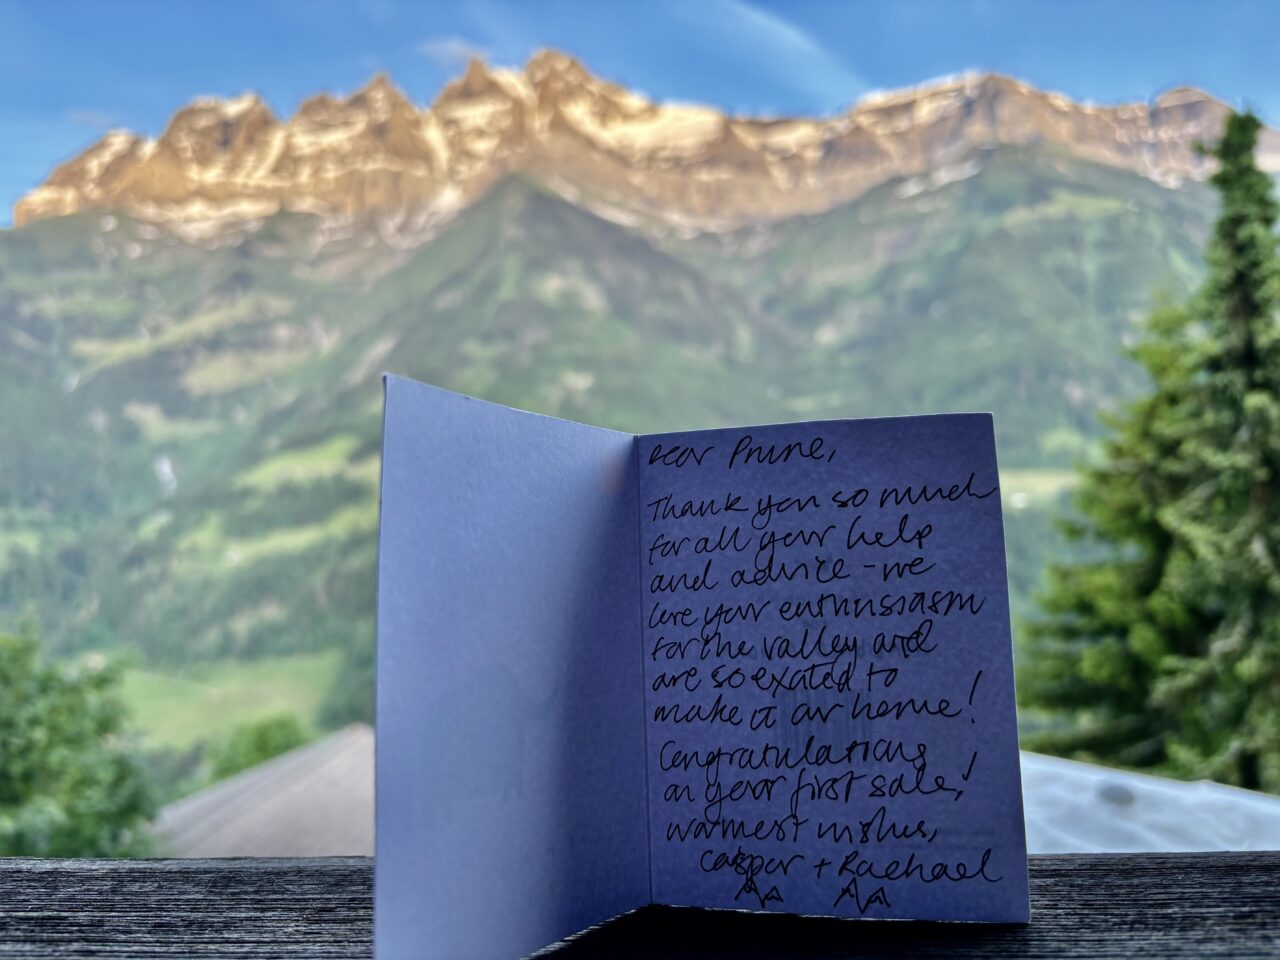 Dear Prune,
Thank you so much
for all your help
and advice - we
love your enthusiasm
for the valley and
are so excited to
make it our home!
Congratulations
on your first sale!
Warmest wishes,
Caspar + Rachael